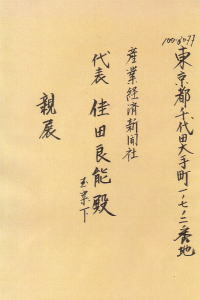 100-8077
東京都千代田大手町一ノ七ノ二番地
産業経済新聞社
代表 佳田良能殿
玉案下
親展